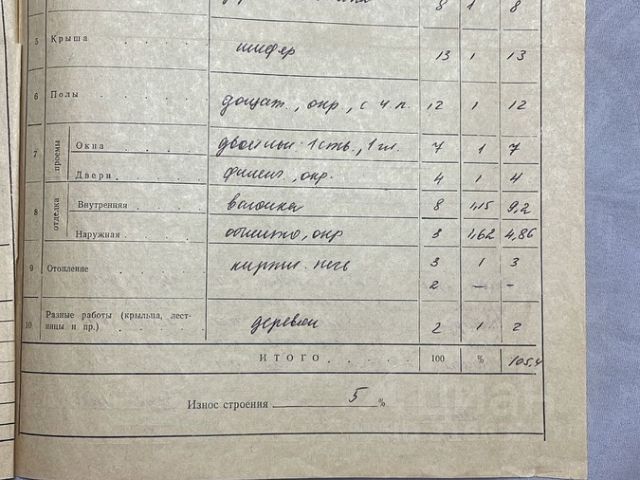 8 1 8
5 Крыша шифер 13 1 13
6 Полы дощат., окр., с ч.п. 12 1 12
7 проемы Окна двойные 1 ств., 1 гл. 7 1 7
Двери филенч., окр. 4 1 4
8 отделка Внутренняя вагонка 8 1,15 9,2
Наружная обшито, окр 3 1,62 4,86
9 Отопление кирпич. печь 3 1 3
2 - -
10 Разные работы (крыльца, лест-
ницы и пр.) деревян 2 1 2
ИТОГО 100 % 105,4
Износ строения 5 %